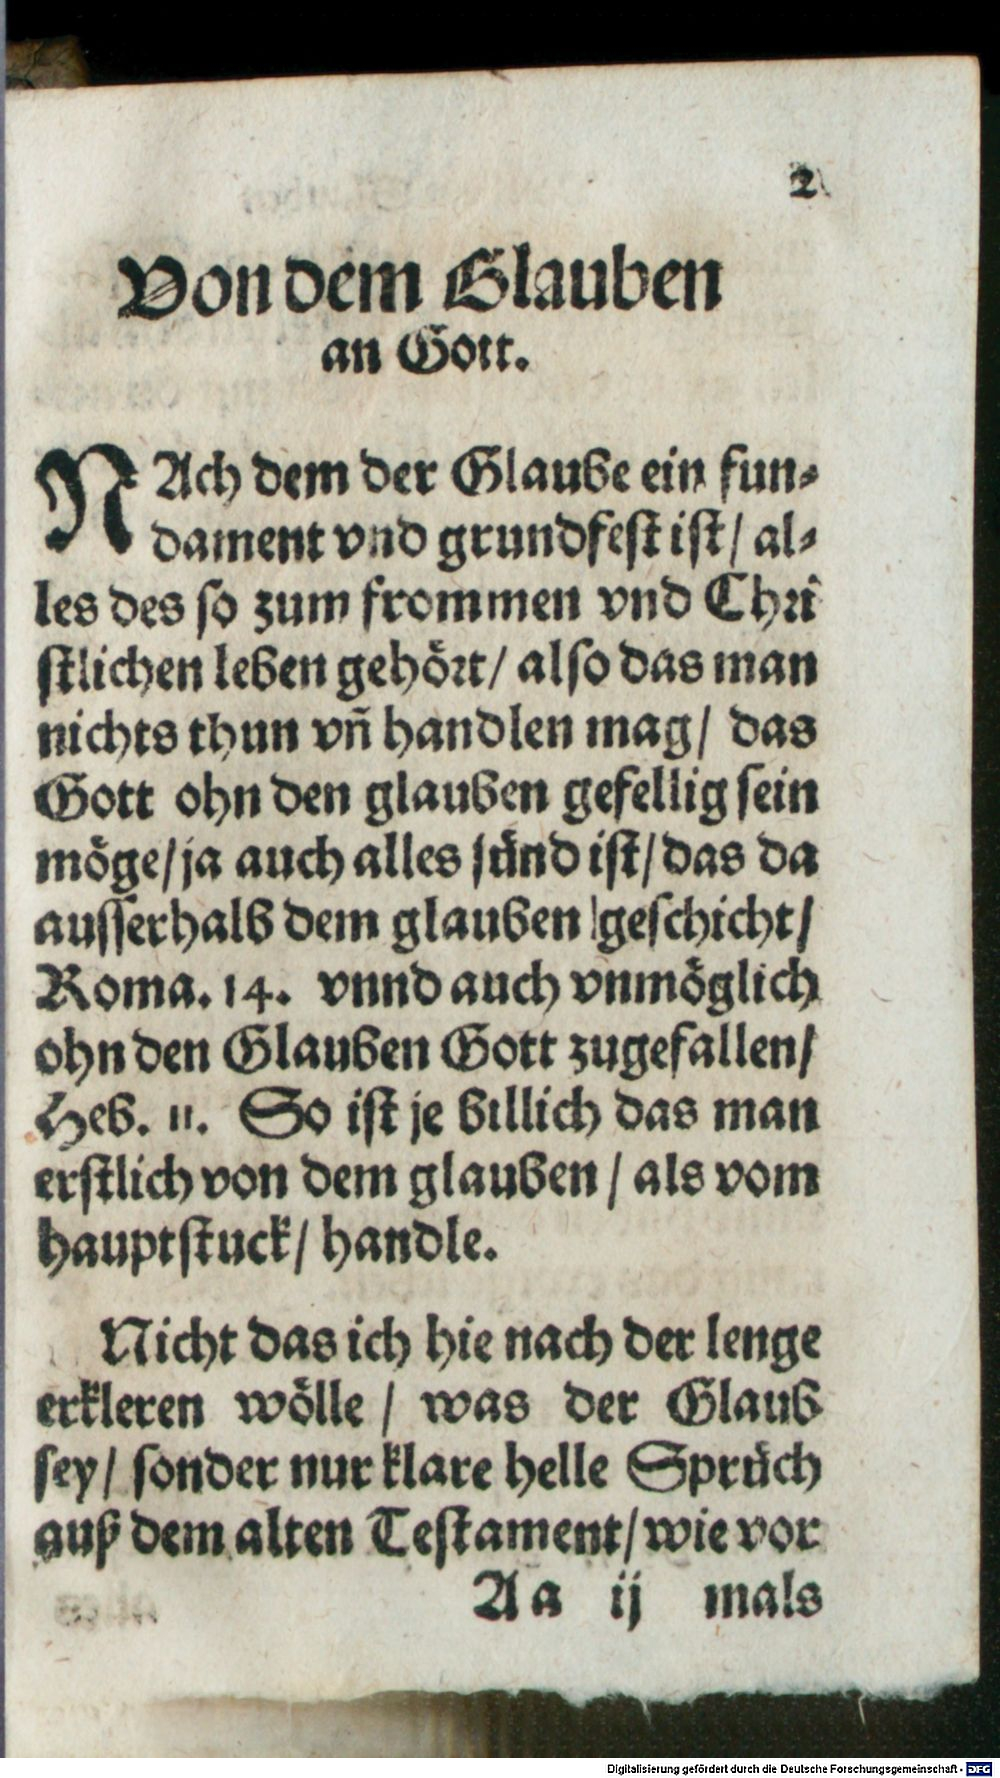 2
Von dem Glauben
an Gott.
NAch dem der Glaube ein fun⸗
dament vnd grundfest ist/ al⸗
les des so zum frommen vnd Chri
stlichen leben gehört/ also das man
nichts thun vñ handlen mag/ das
Gott ohn den glauben gefellig sein
möge/ja auch alles sünd ist/das da
ausserhalb dem glauben geschicht/
Roma. 14. vnnd auch vnmöglich
ohn den Glauben Gott zugefallen/
Heb. 11. So ist je billich das man
erstlich von dem glauben / als vom
hauptstuck/ handle.
Nicht das ich hie nach der lenge
erkleren wölle / was der Glaub
sey/ sonder nur klare helle Sprüch
auß dem alten Testament/wie vor
Aa ij mals
Digitalisierung gefördert durch die Deutsche Forschungsgemeinschaft - DFG